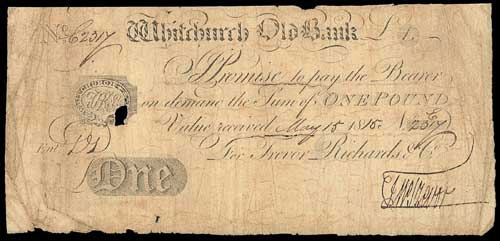 No C2317 Whitchurch Old Bank £1.
I Promise to pay the Bearer
on demand the Sum of ONE POUND
Value received May 15 1815 No C2317
For Trevor Richards & Co
Entd
One